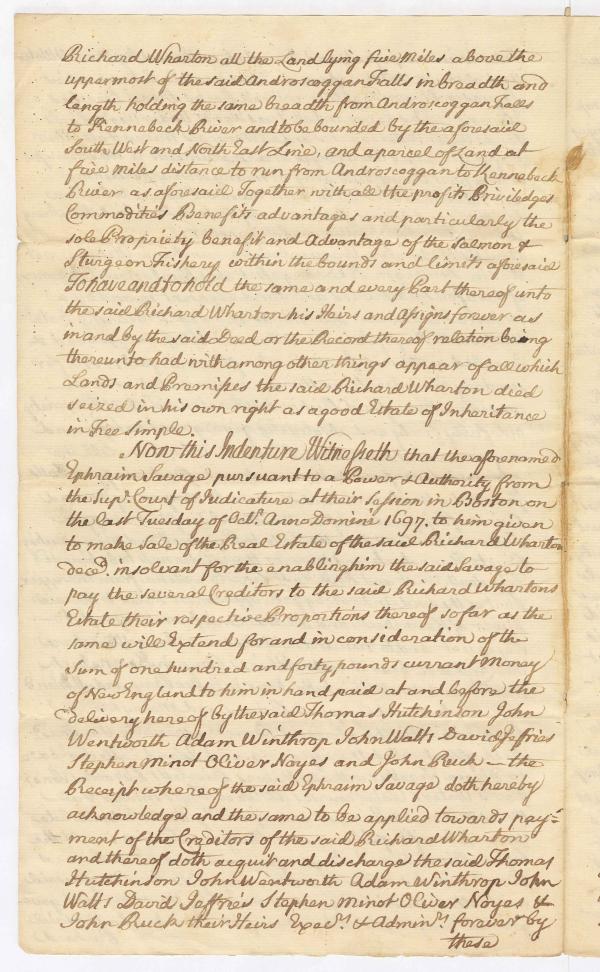 Richard Wharton all the Land lying five miles above the
uppermost of the said Androscoggan Falls in breadth and
length holding the same breadth from Androscoggan Falls
to Kennebeck River and to be bounded by the aforesaid
South West and North East Line, and a parcel of Land at
five miles distance to run from Androscoggan to Kennebeck
River as aforesaid Together with all the profits Priviledges
Commodities Benefits advantages and particularly the
sole Propriety benefit and Advantage of the Salmon &
Sturgeon Fishery within the bounds and limits aforesaid
To have and to hold the same and every Part thereof unto
the said Richard Wharton his Heirs and Assigns forever as
in and by the said Deed or the Record thereof relation being
thereunto had with among other things appear of all which
Lands and Premisses the said Richard Wharton died
seized in his own right as a good Estate of Inheritance
in Fee Simple.
Now this Indenture Witnesseth that the aforenamed
Ephraim Savage pursuant to a Power & Authority from
the Supr. Court of Judicature at their Session in Boston on
the last Tuesday of Octr. Anno Domini 1697. to him given
to make Sale of the Real Estate of the said Richard Wharton
deced. insolvant for the enabling him the said Savage to
pay the several Creditors to the said Richard Whartons
Estate their respective Proportions thereof so far as the
same will Extend for and in consideration of the
Sum of one hundred and forty pounds currant Money
of New England to him in hand paid at and before the
delivery hereof by the said Thomas Hutchinson John
Wentworth Adam Winthrop John Watts David Jeffries
Stephen Minot Oliver Noyes and John Ruck — the
Receipt whereof the said Ephraim Savage doth hereby
acknowledge and the same to be applied towards pay=
=ment of the Creditors of the said Richard Wharton
and thereof doth acquit and discharge the said Thomas
Hutchinson John Wentworth Adam Winthrop John
Watts David Jeffries Stephen Minot Oliver Noyes &
John Ruck their Heirs Execrs. & Adminrs. forever by
these